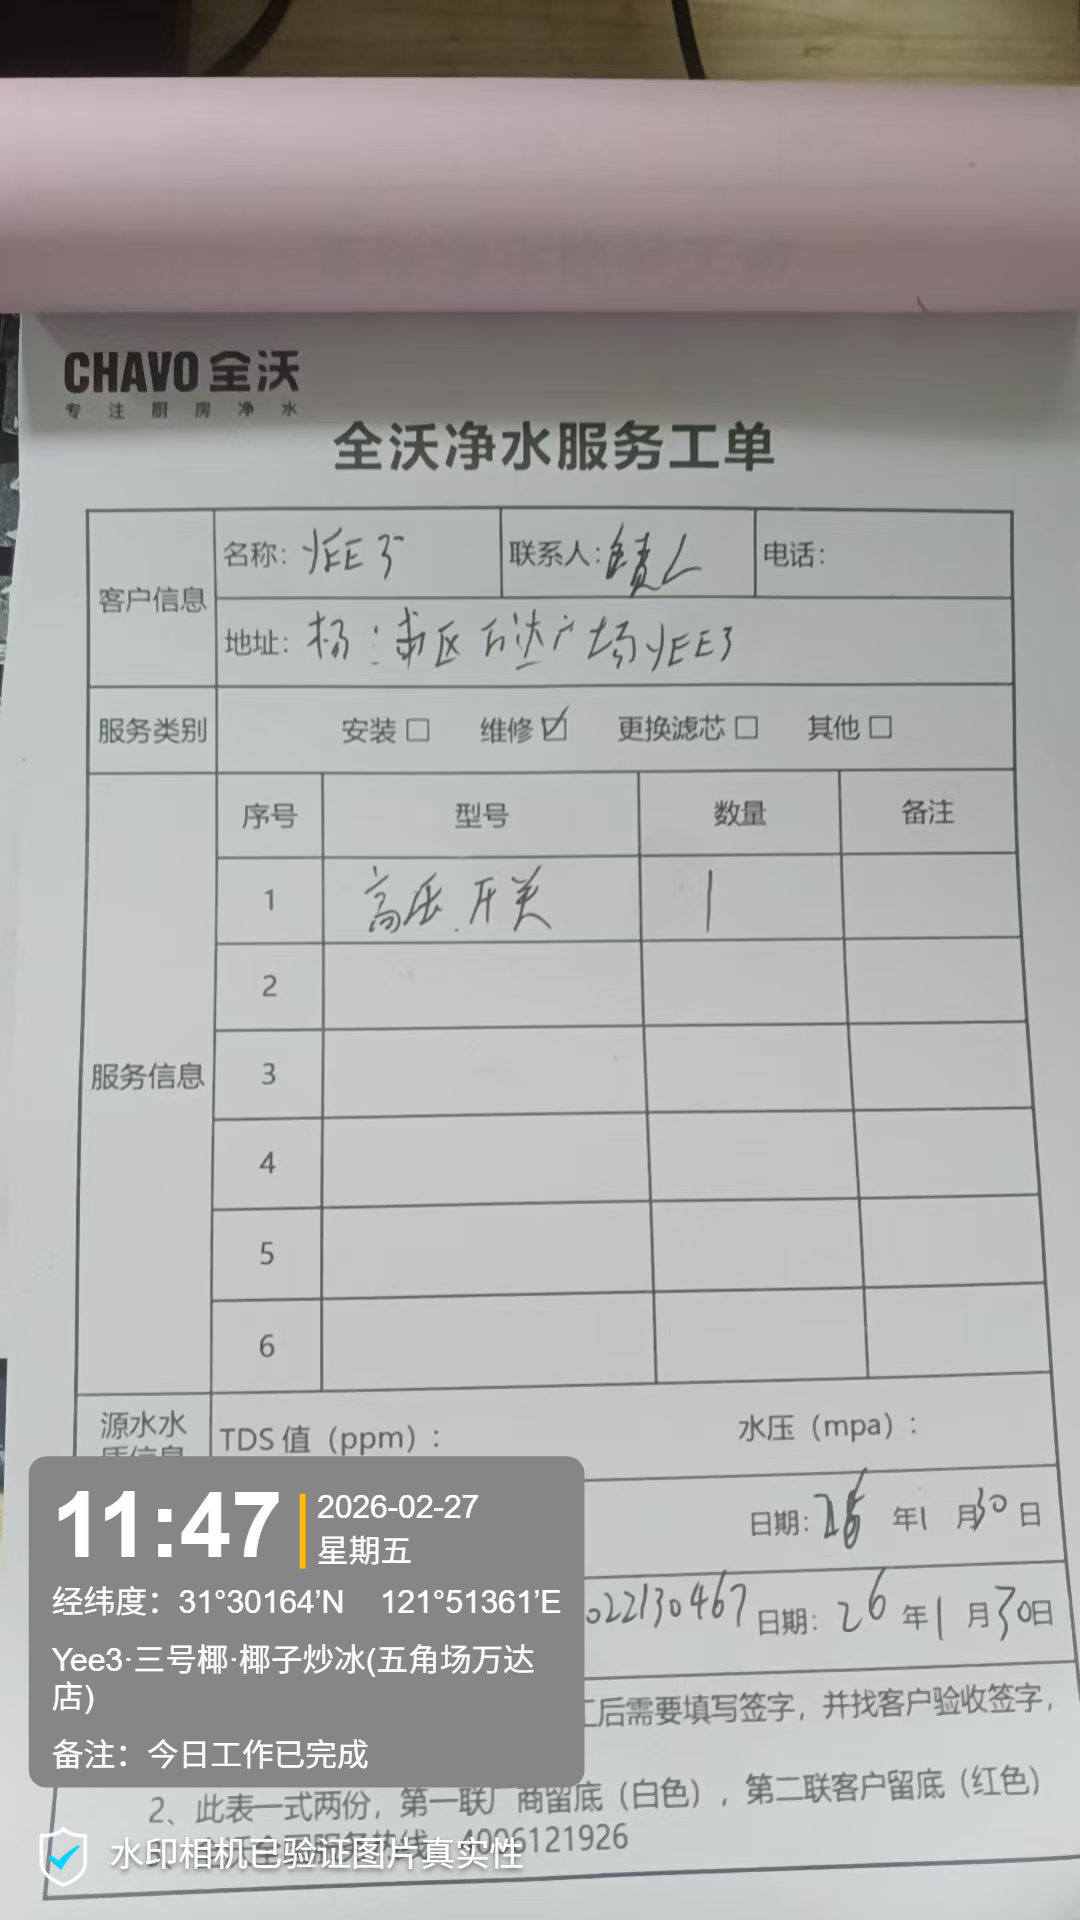 CHAVO 全沃
专注厨房净水
全沃净水服务工单
客户信息 名称: YEE3 联系人: 电话:
地址: 杨浦区万达广场YEE3
服务类别 安装□ 维修☑ 更换滤芯□ 其他□
服务信息 序号 型号 数量 备注
1 高压开关 1
2
3
4
5
6
源水水质信息 TDS 值（ppm）: 水压（mpa）:
日期: 年1月30日
022130467 日期: 26年1月30日
工后需要填写签字，并找客户验收签字，
2、此表一式两份，第一联厂商留底（白色），第二联客户留底（红色）
4006121926
11:47
2026-02-27
星期五
经纬度: 31°30164'N 121°51361'E
Yee3·三号椰·椰子炒冰(五角场万达
店)
备注: 今日工作已完成
水印相机已验证图片真实性